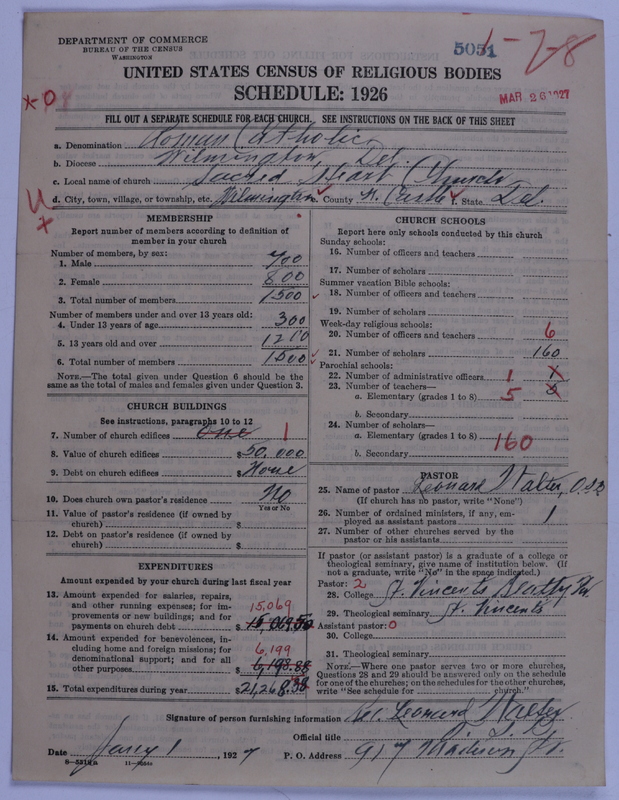 DEPARTMENT OF COMMERCE
BUREAU OF THE CENSUS
WASHINGTON
5051
1-7-8
UNITED STATES CENSUS OF RELIGIOUS BODIES
SCHEDULE: 1926
MAR 26 1927
x-0
FILL OUT A SEPARATE SCHEDULE FOR EACH CHURCH. SEE INSTRUCTIONS ON THE BACK OF THIS SHEET
a. Denomination Roman Catholic
b. Diocese Wilmington Del.
c. Local name of church Sacred Heart Church
d. City, town, village, or township, etc. Wilmington e. County N. Castle f. State Del.
MEMBERSHIP
Report number of members according to definition of
member in your church
Number of members, by sex:
1. Male 700
2. Female 800
3. Total number of members 1500
Number of members under and over 13 years old:
4. Under 13 years of age 300
5. 13 years old and over 1200
6. Total number of members 1500
NOTE.—The total given under Question 6 should be the
same as the total of males and females given under Question 3.
CHURCH BUILDINGS
See instructions, paragraphs 10 to 12
7. Number of church edifices One 1
8. Value of church edifices $50,000
9. Debt on church edifices $None
10. Does church own pastor's residence No
Yes or No
11. Value of pastor's residence (if owned by
church) $
12. Debt on pastor's residence (if owned by
church) $
EXPENDITURES
Amount expended by your church during last fiscal year
13. Amount expended for salaries, repairs,
and other running expenses; for im-
provements or new buildings; and for
payments on church debt $15,069.50
15,069
14. Amount expended for benevolences, in-
cluding home and foreign missions; for
denominational support; and for all
other purposes $6,198.88
6,199
15. Total expenditures during year $21,268.38
CHURCH SCHOOLS
Report here only schools conducted by this church
Sunday schools:
16. Number of officers and teachers
17. Number of scholars
Summer vacation Bible schools:
18. Number of officers and teachers
19. Number of scholars
Week-day religious schools:
20. Number of officers and teachers 6
21. Number of scholars 160
Parochial schools:
22. Number of administrative officers 1
23. Number of teachers—
a. Elementary (grades 1 to 8) 5
b. Secondary
24. Number of scholars—
a. Elementary (grades 1 to 8) 160
b. Secondary
PASTOR
25. Name of pastor Leonard Walter, O.S.B
(If church has no pastor, write "None")
26. Number of ordained ministers, if any, em-
ployed as assistant pastors 1
27. Number of other churches served by the
pastor or his assistants
If pastor (or assistant pastor) is a graduate of a college or
theological seminary, give name of institution below. (If
not a graduate, write "No" in the space indicated.)
Pastor: 2
28. College St. Vincents
29. Theological seminary St. Vincents
Assistant pastor: 0
30. College
31. Theological seminary
NOTE.—Where one pastor serves two or more churches,
Questions 28 and 29 should be answered only on the schedule
for one of the churches; on the schedules for the other churches,
write "See schedule for church."
Signature of person furnishing information Leonard Walter
Official title
Date 1, 1927 P. O. Address 917 Madison St.
8—5319a 11—9554c